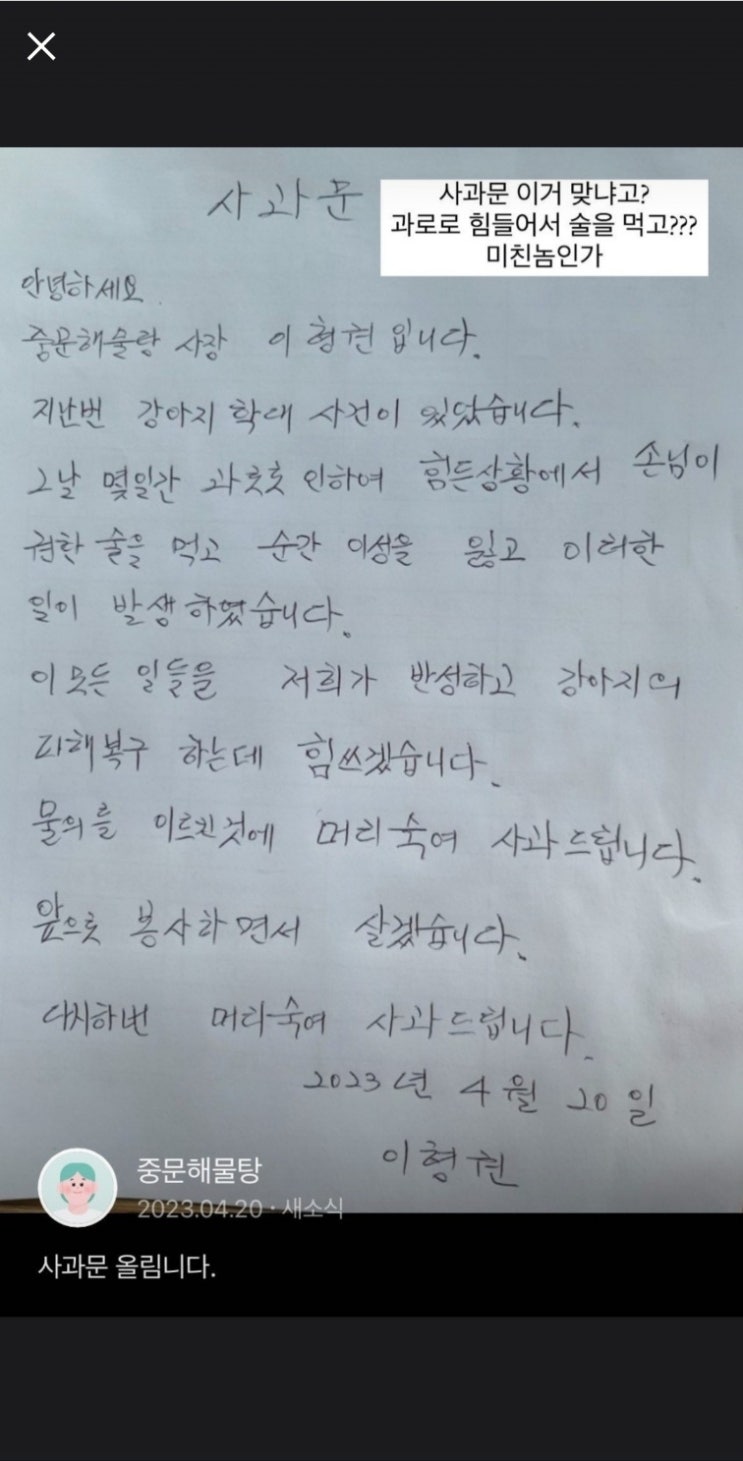 사과문
사과문 이거 맞냐고?
과로로 힘들어서 술을 먹고???
미친놈인가
안녕하세요.
중문해물탕 사장 이형권입니다.
지난번 강아지 학대 사건이 있었습니다.
그날 몇일간 과로로 인하여 힘든상황에서 손님이
권한 술을 먹고 순간 이성을 잃고 이러한
일이 발생하였습니다.
이 모든 일들을 저희가 반성하고 강아지의
피해복구 하는데 힘쓰겠습니다.
물의를 이르킨것에 머리숙여 사과드립니다.
앞으로 봉사하면서 살겠습니다.
다시한번 머리숙여 사과드립니다.
2023년 4월 20일
이형권
중문해물탕
2023.04.20 · 새소식
사과문 올림니다.